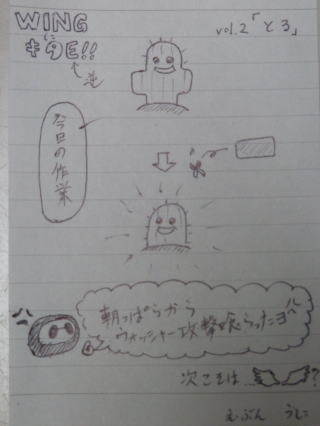 WING
キタE!!
逆
vol.2「とろ」
今日の作業
朝っぱらから
ウォッシャー攻撃喰らったヨ
次こそは
?
え・ぶん うしこ